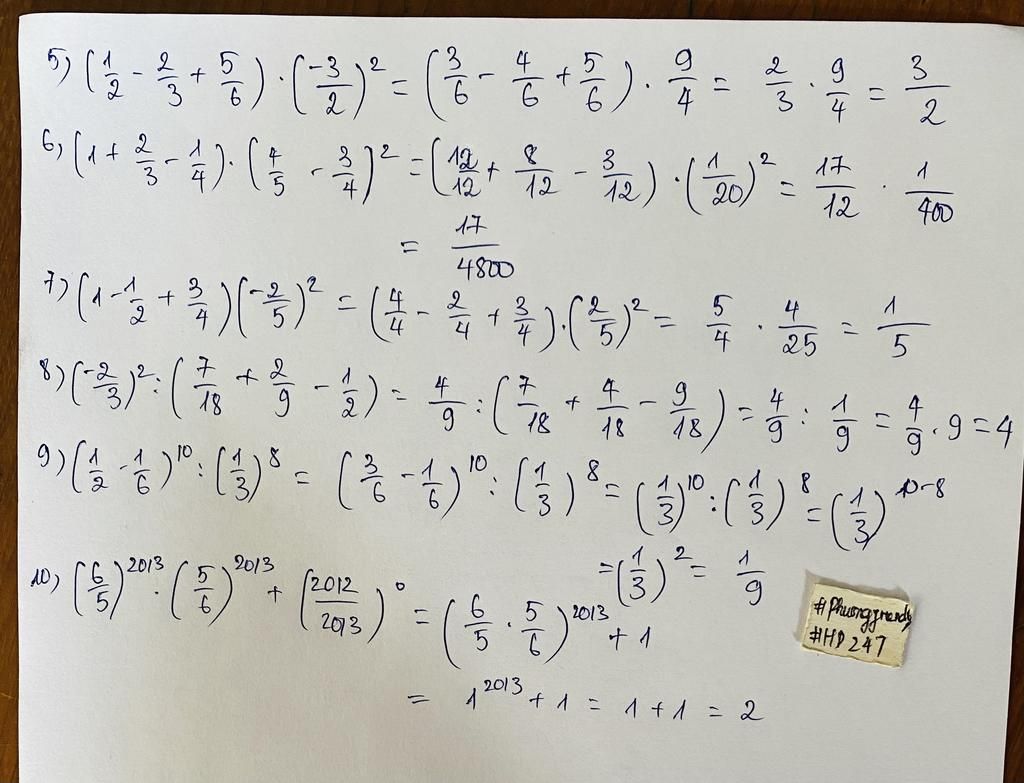 5) (1/2 - 2/3 + 5/6) · (-3/2)² = (3/6 - 4/6 + 5/6) · 9/4 = 2/3 · 9/4 = 3/2
6) (1 + 2/3 - 1/4) · (4/5 - 3/4)² = (12/12 + 8/12 - 3/12) · (1/20)² = 17/12 · 1/400
= 17/4800
7) (1 - 1/2 + 3/4)(-2/5)² = (4/4 - 2/4 + 3/4) · (2/5)² = 5/4 · 4/25 = 1/5
8) (-2/3)² : (7/18 + 2/9 - 1/2) = 4/9 : (7/18 + 4/18 - 9/18) = 4/9 : 1/9 = 4/9 · 9 = 4
9) (1/2 - 1/6)¹⁰ : (1/3)⁸ = (3/6 - 1/6)¹⁰ : (1/3)⁸ = (1/3)¹⁰ : (1/3)⁸ = (1/3)¹⁰⁻⁸
= (1/3)² = 1/9
10) (6/5)²⁰¹³ · (5/6)²⁰¹³ + (2012/2013)⁰ = (6/5 · 5/6)²⁰¹³ + 1
= 1²⁰¹³ + 1 = 1 + 1 = 2
#HD247